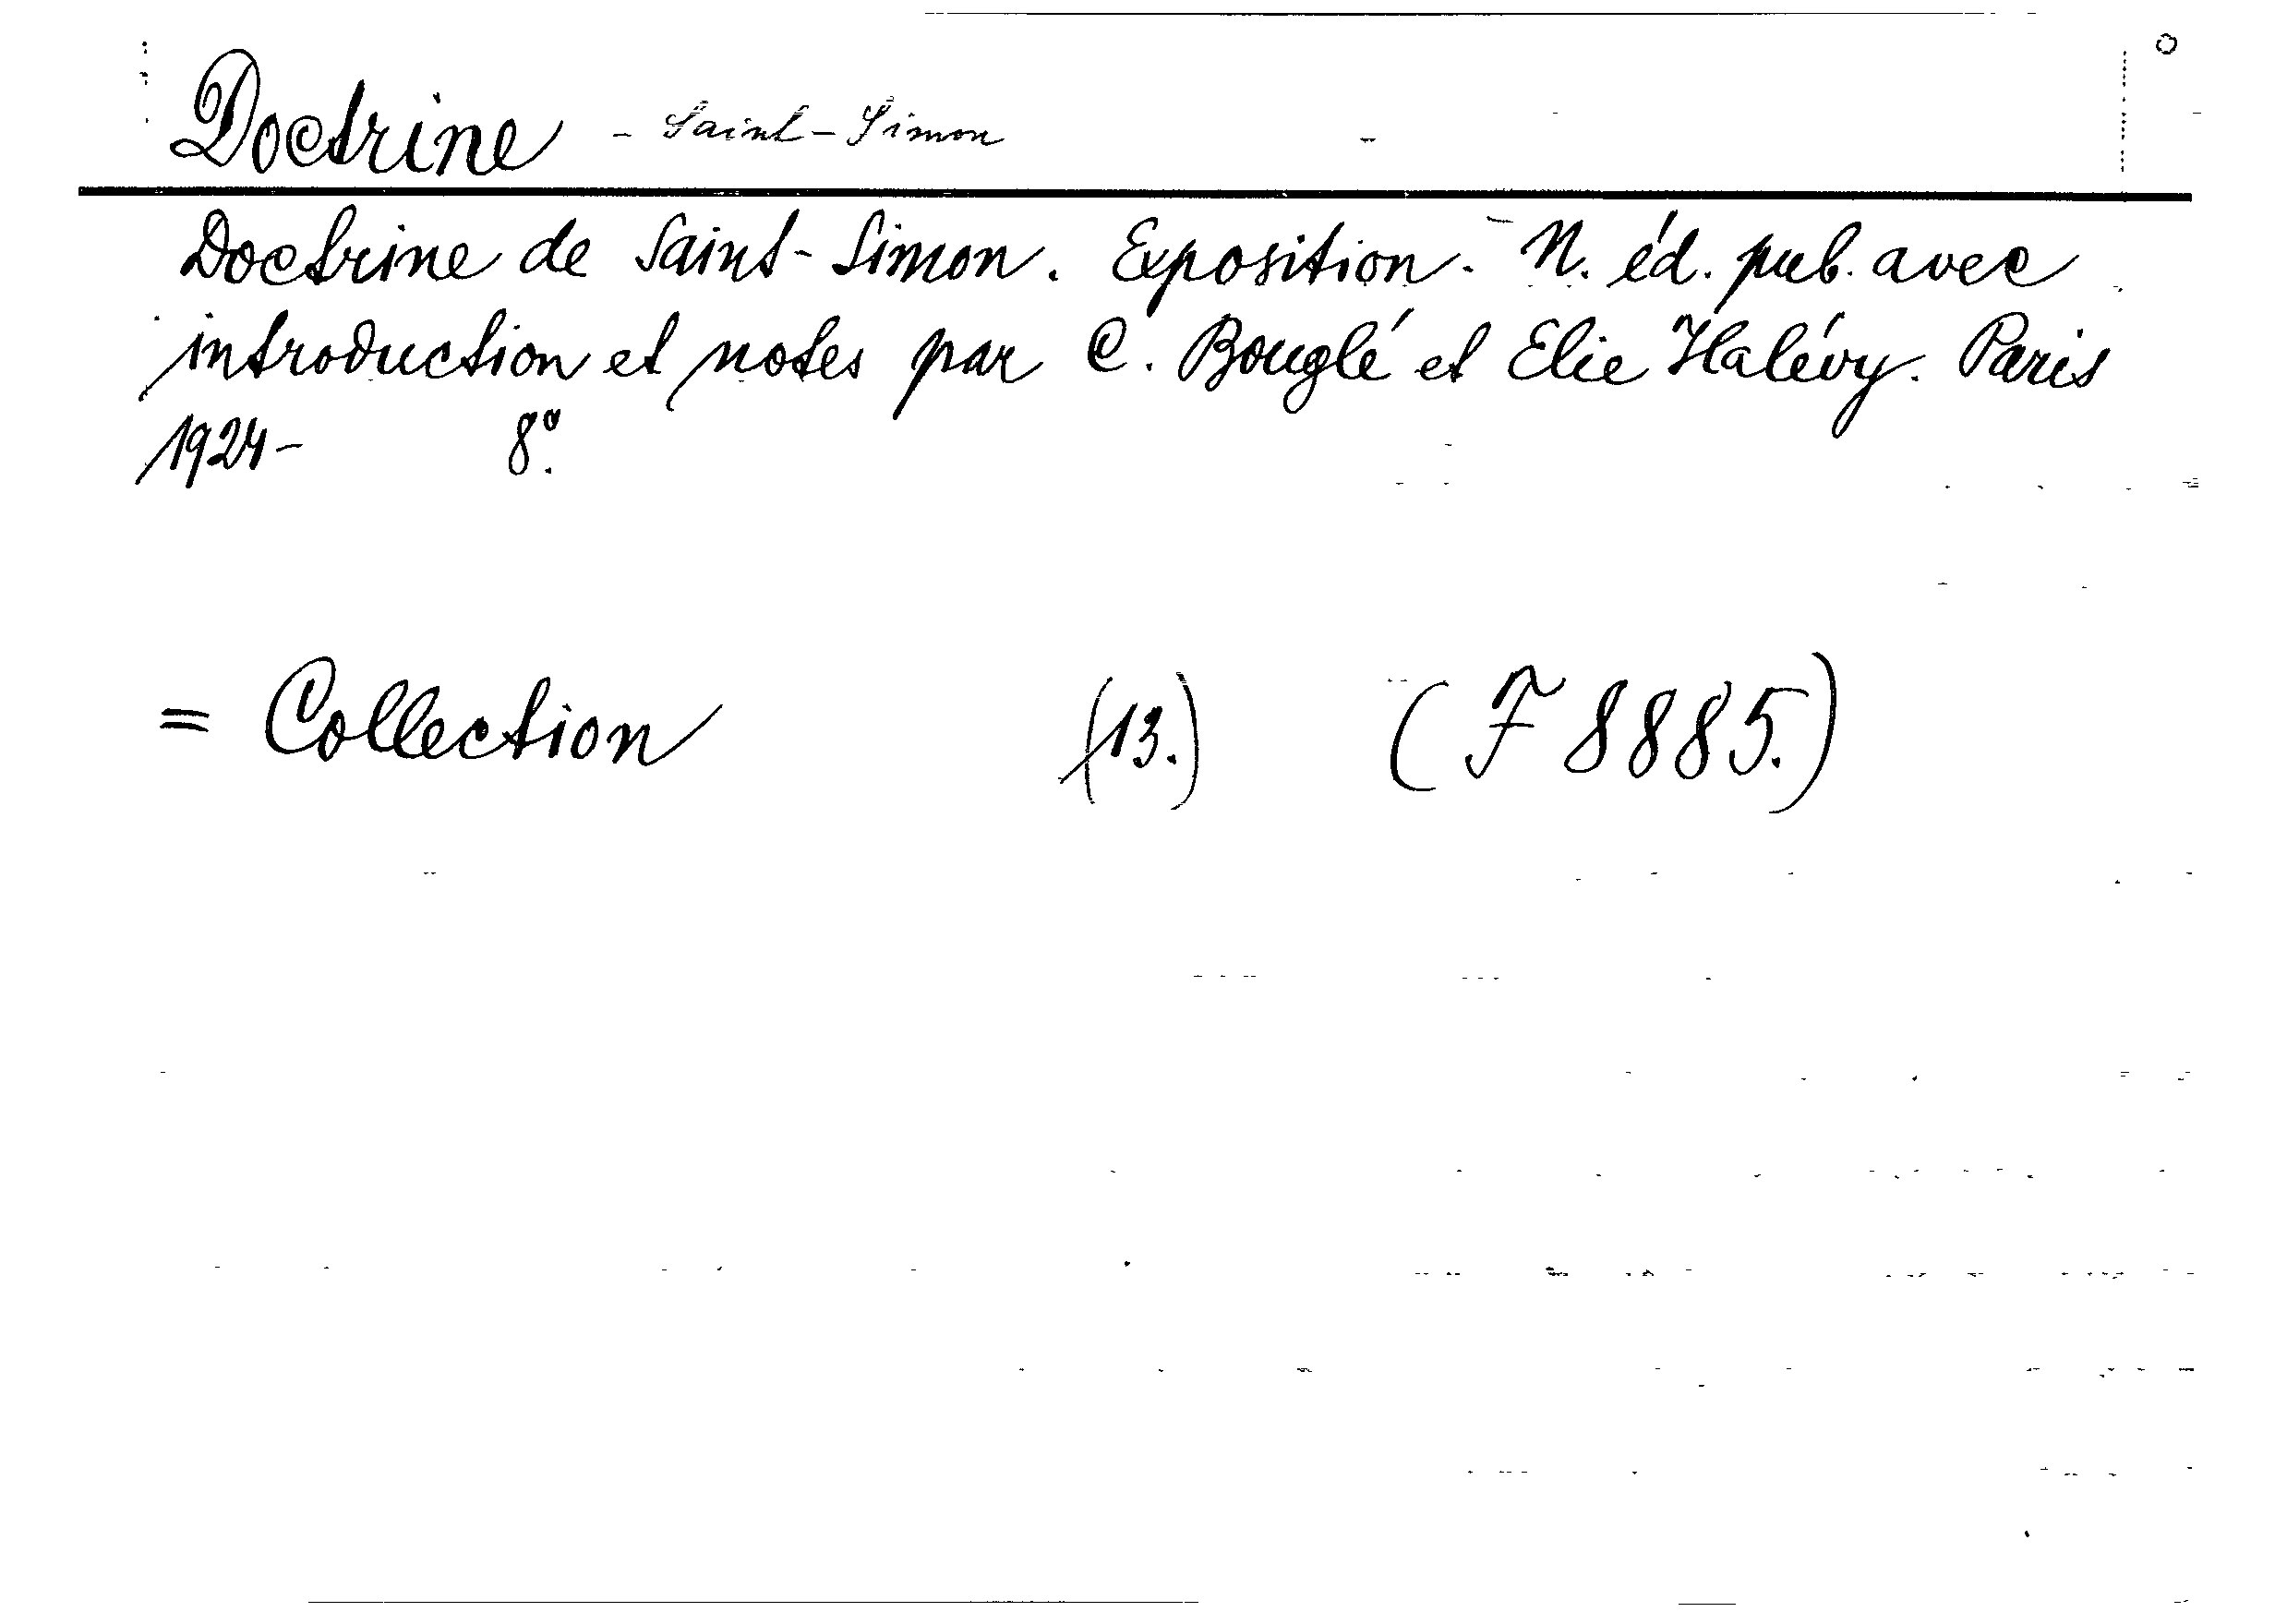 Doctrine - Saint-Simon
Doctrine de Saint-Simon. Exposition. - N. éd. pub. avec
introduction et notes par C. Bouglé et Elie Halévy. Paris
1924- 8º.
= Collection (13.) (F 8885.)